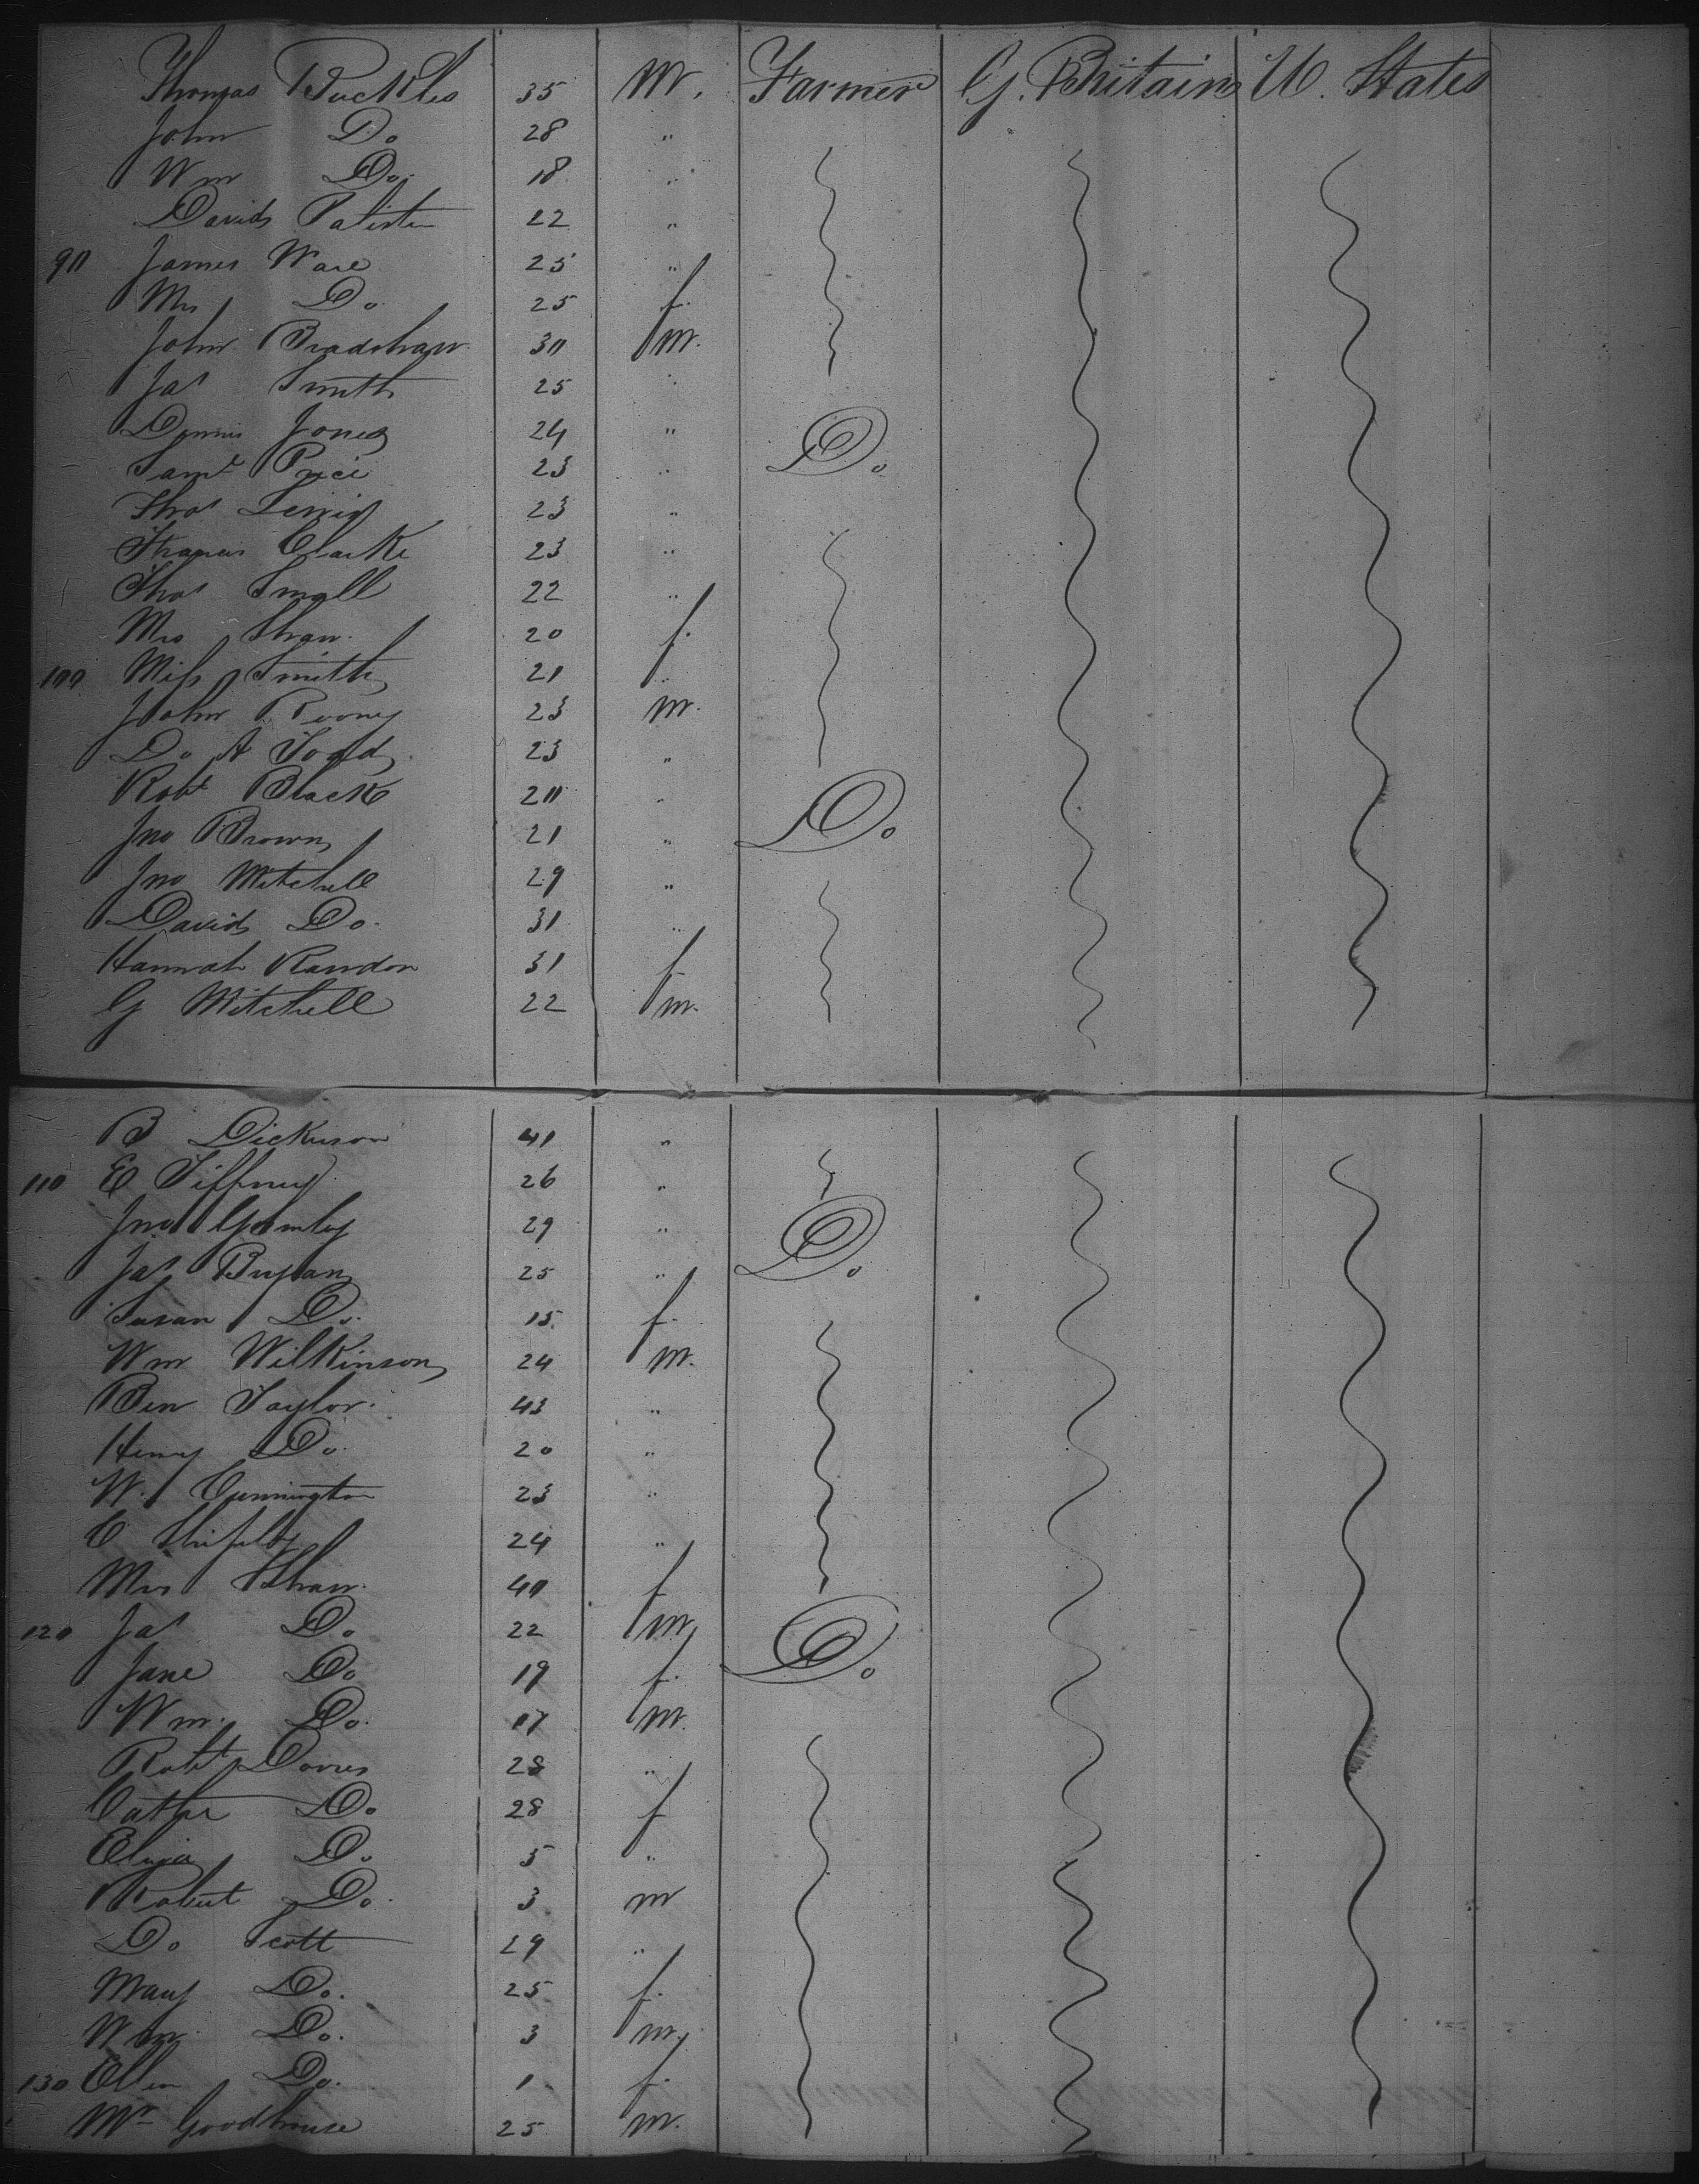 Thomas Buckles 35 M. Farmer G. Britain U. States
John Do 28 "
Wm Do. 18 "
David 22 "
90 James Ware 25 "
Mrs Do. 25 f.
John Bradshaw 30 m.
Jas Smith 25 "
Dennis Jones 24 " Do
Saml Price 23 "
Thos Lewis 23 "
Francis Clarke 23 "
Thos Small 22 "
Mrs Shaw. 20 f.
100 Miss Smith 21
John Rooney 23 m.
Do A Todd 23 "
Robt Black 20 " Do
Jno Brown 21 "
Jno Mitchell 29 "
David Do. 31 "
Hannah 31 f
G Mitchell 22 m.
B Dickinson 41 "
110 E Tiffney 26 "
Jno 29 " Do.
Jas Bryan 25 "
Susan Do. 15 f.
Wm Wilkinson 24 m.
Ben Taylor. 43 "
Henry Do. 20 "
W. Cunnington 23 "
C 24 "
Mrs Shaw. 40 f
120 Jas Do 22 m Do.
Jane Do 19 f.
Wm. Do. 17 m.
Robt Davies 28 "
Cathe Do. 28 f
Eliza Do. 5 "
Robert Do. 3 m
Do Scott 29 "
Mary Do. 25 f.
Wm. Do. 3 m.
130 Ellen Do. 1 f.
Mr Goodhouse 25 m.